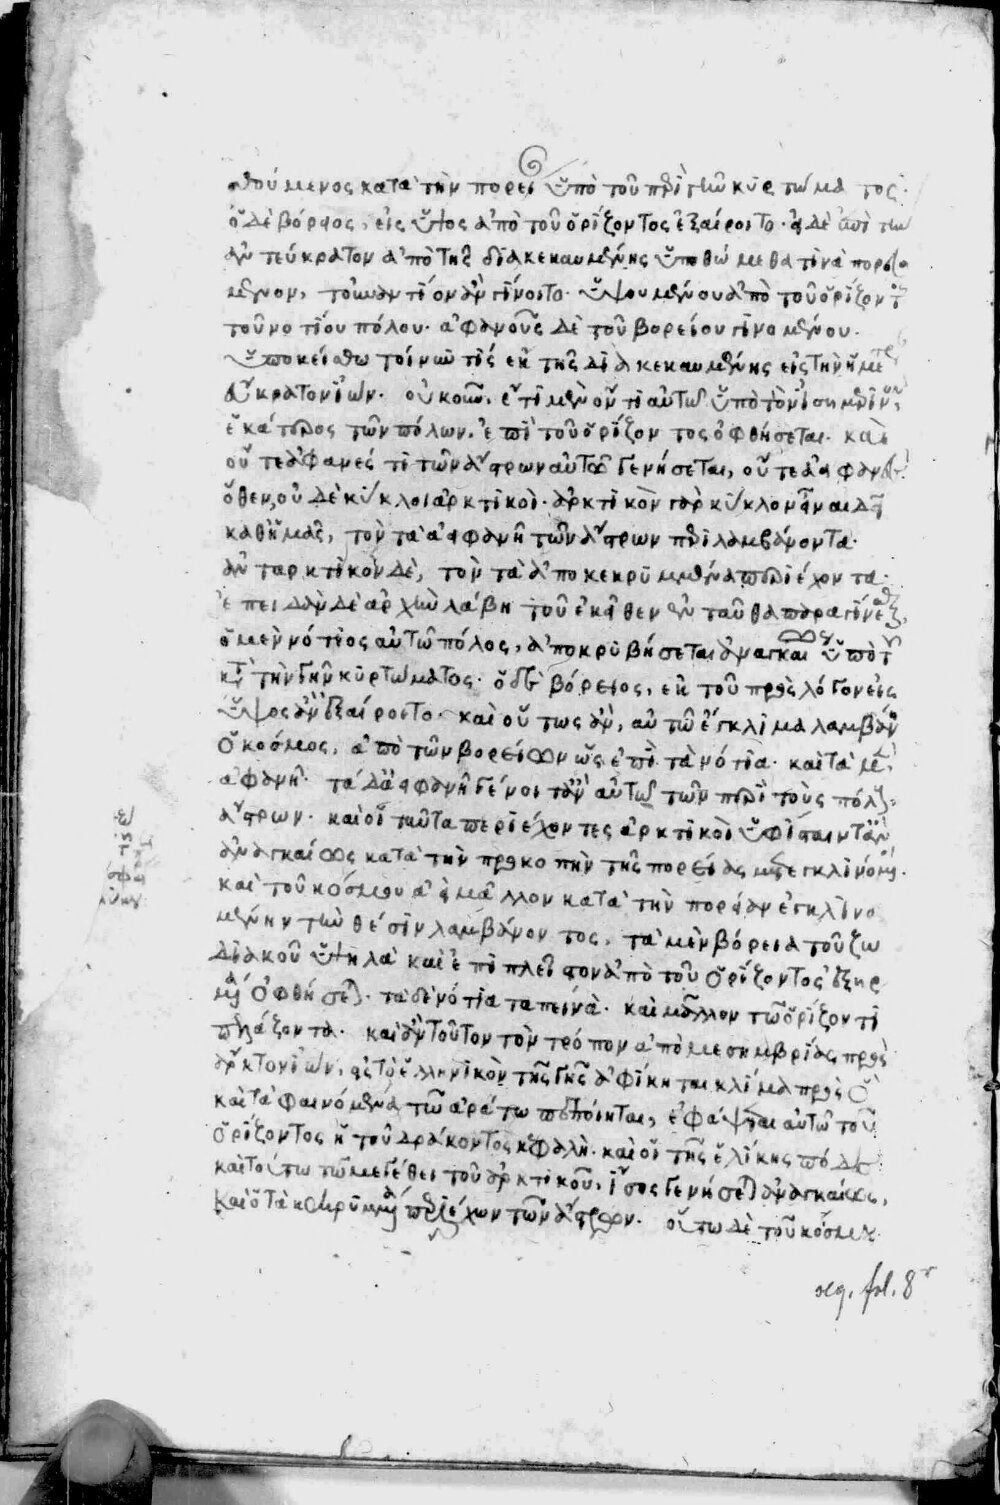 θούμενος κατὰ τὴν πορεί ὑπὸ τοῦ περὶ τὴν κύρτωματος·
ὁ δὲ βόρειος, εἰς ὕψος ἀπὸ τοῦ ὁρίζοντος ἐξαίροιτο· εἰ δὲ ἐπὶ τὴν
ἀντεύκρατον ἀπὸ τῆς διακεκαυμένης ὑποθώμεθα τινὰ πορευό
μενον, τοὐναντίον ἂν γίνοιτο· ὑψουμένου ἀπὸ τοῦ ὁρίζοντος
τοῦ νοτίου πόλου· ἀφανοῦς δὲ τοῦ βορείου γινομένου.
ὑποκείσθω τοίνυν τίς ἐκ τῆς διακεκαυμένης εἰς τὴν ἡμετέραν
εὔκρατον ἰών· οὐκοῦν, ἔτι μὲν ὄντι αὐτῷ ὑπὸ τὸν ἰσημερινὸν,
ἑκάτερος τῶν πόλων, ἐπὶ τοῦ ὁρίζοντος ὀφθήσεται· καὶ
οὔτε ἀφανές τι τῶν ἄστρων αὐτῷ γενήσεται, οὔτε ἀειφανές·
ὅθεν, οὐδὲ κύκλοι ἀρκτικοί· ἀρκτικὸν γὰρ κύκλον εἶναι δεῖ
καθ' ἡμᾶς, τὸν τὰ ἀειφανῆ τῶν ἄστρων περιλαμβάνοντα·
ἀνταρκτικὸν δὲ, τὸν τὰ ἀποκεκρυμμένα περιέχοντα·
ἐπειδὰν δὲ ἀρχὴν λάβῃ τοῦ ἐκεῖθεν ἐνταῦθα παραγίνεσθαι,
ὁ μὲν νότιος αὐτῷ πόλος, ἀποκρυβήσεται ἀναγκαίως ὑπὸ τοῦ
κατὰ τὴν γῆν κυρτώματος· ὁ δὲ βόρειος, ἐκ τοῦ πρὸς λόγον εἰς
ὕψος ἂν ἐξαίροιτο· καὶ οὕτως ἂν, αὐτῷ ἔγκλιμα λαμβάνοι
ὁ κόσμος, ἀπὸ τῶν βορείων ὡς ἐπὶ τὰ νότια· καὶ τὰ μὲν
ἀφανῆ· τὰ δ' ἀειφανῆ γένοιτ' ἂν αὐτῷ τῶν περὶ τοὺς πόλους
ἄστρων· καὶ οἱ ταῦτα περιέχοντες ἀρκτικοὶ ὑφίσταιντ' ἂν
ἀναγκαίως κατὰ τὴν προκοπὴν τῆς πορείας μετεγκλινόμενοι·
καὶ τοῦ κόσμου ἀεὶ μᾶλλον κατὰ τὴν πορείαν ἐγκλινο
μένην τὴν θέσιν λαμβάνοντος, τὰ μὲν βόρεια τοῦ ζω
διακοῦ ὑψηλὰ καὶ ἐπὶ πλεῖστον ἀπὸ τοῦ ὁρίζοντος ἐξηρ
μένα ὀφθήσεται· τὰ δὲ νότια ταπεινὰ· καὶ μᾶλλον τῷ ὁρίζοντι
πελάζοντα· καὶ ἂν τοῦτον τὸν τρόπον ἀπὸ μεσημβρίας πρὸς
ἄρκτον ἰὼν, εἰς τὸ ἑλληνικὸν τῆς γῆς ἀφίκηται κλίμα πρὸς ὃ
καὶ τὰ φαινόμενα τῷ ἀράτω πεποίηται, ἐφάψεται αὐτῷ τοῦ
ὁρίζοντος ἥ τοῦ δράκοντος κεφαλὴ· καὶ οἱ τῆς ἑλίκης πόδες·
καὶ τούτω τῷ μεγέθει τοῦ ἀρκτικοῦ, ἴσος γενήσεται ἀναγκαίως,
καὶ ὁ τὰ κεκρυμμένα περιέχων τῶν ἄστρων· οὕτω δὲ τοῦ κόσμου
seq. fol. 8r